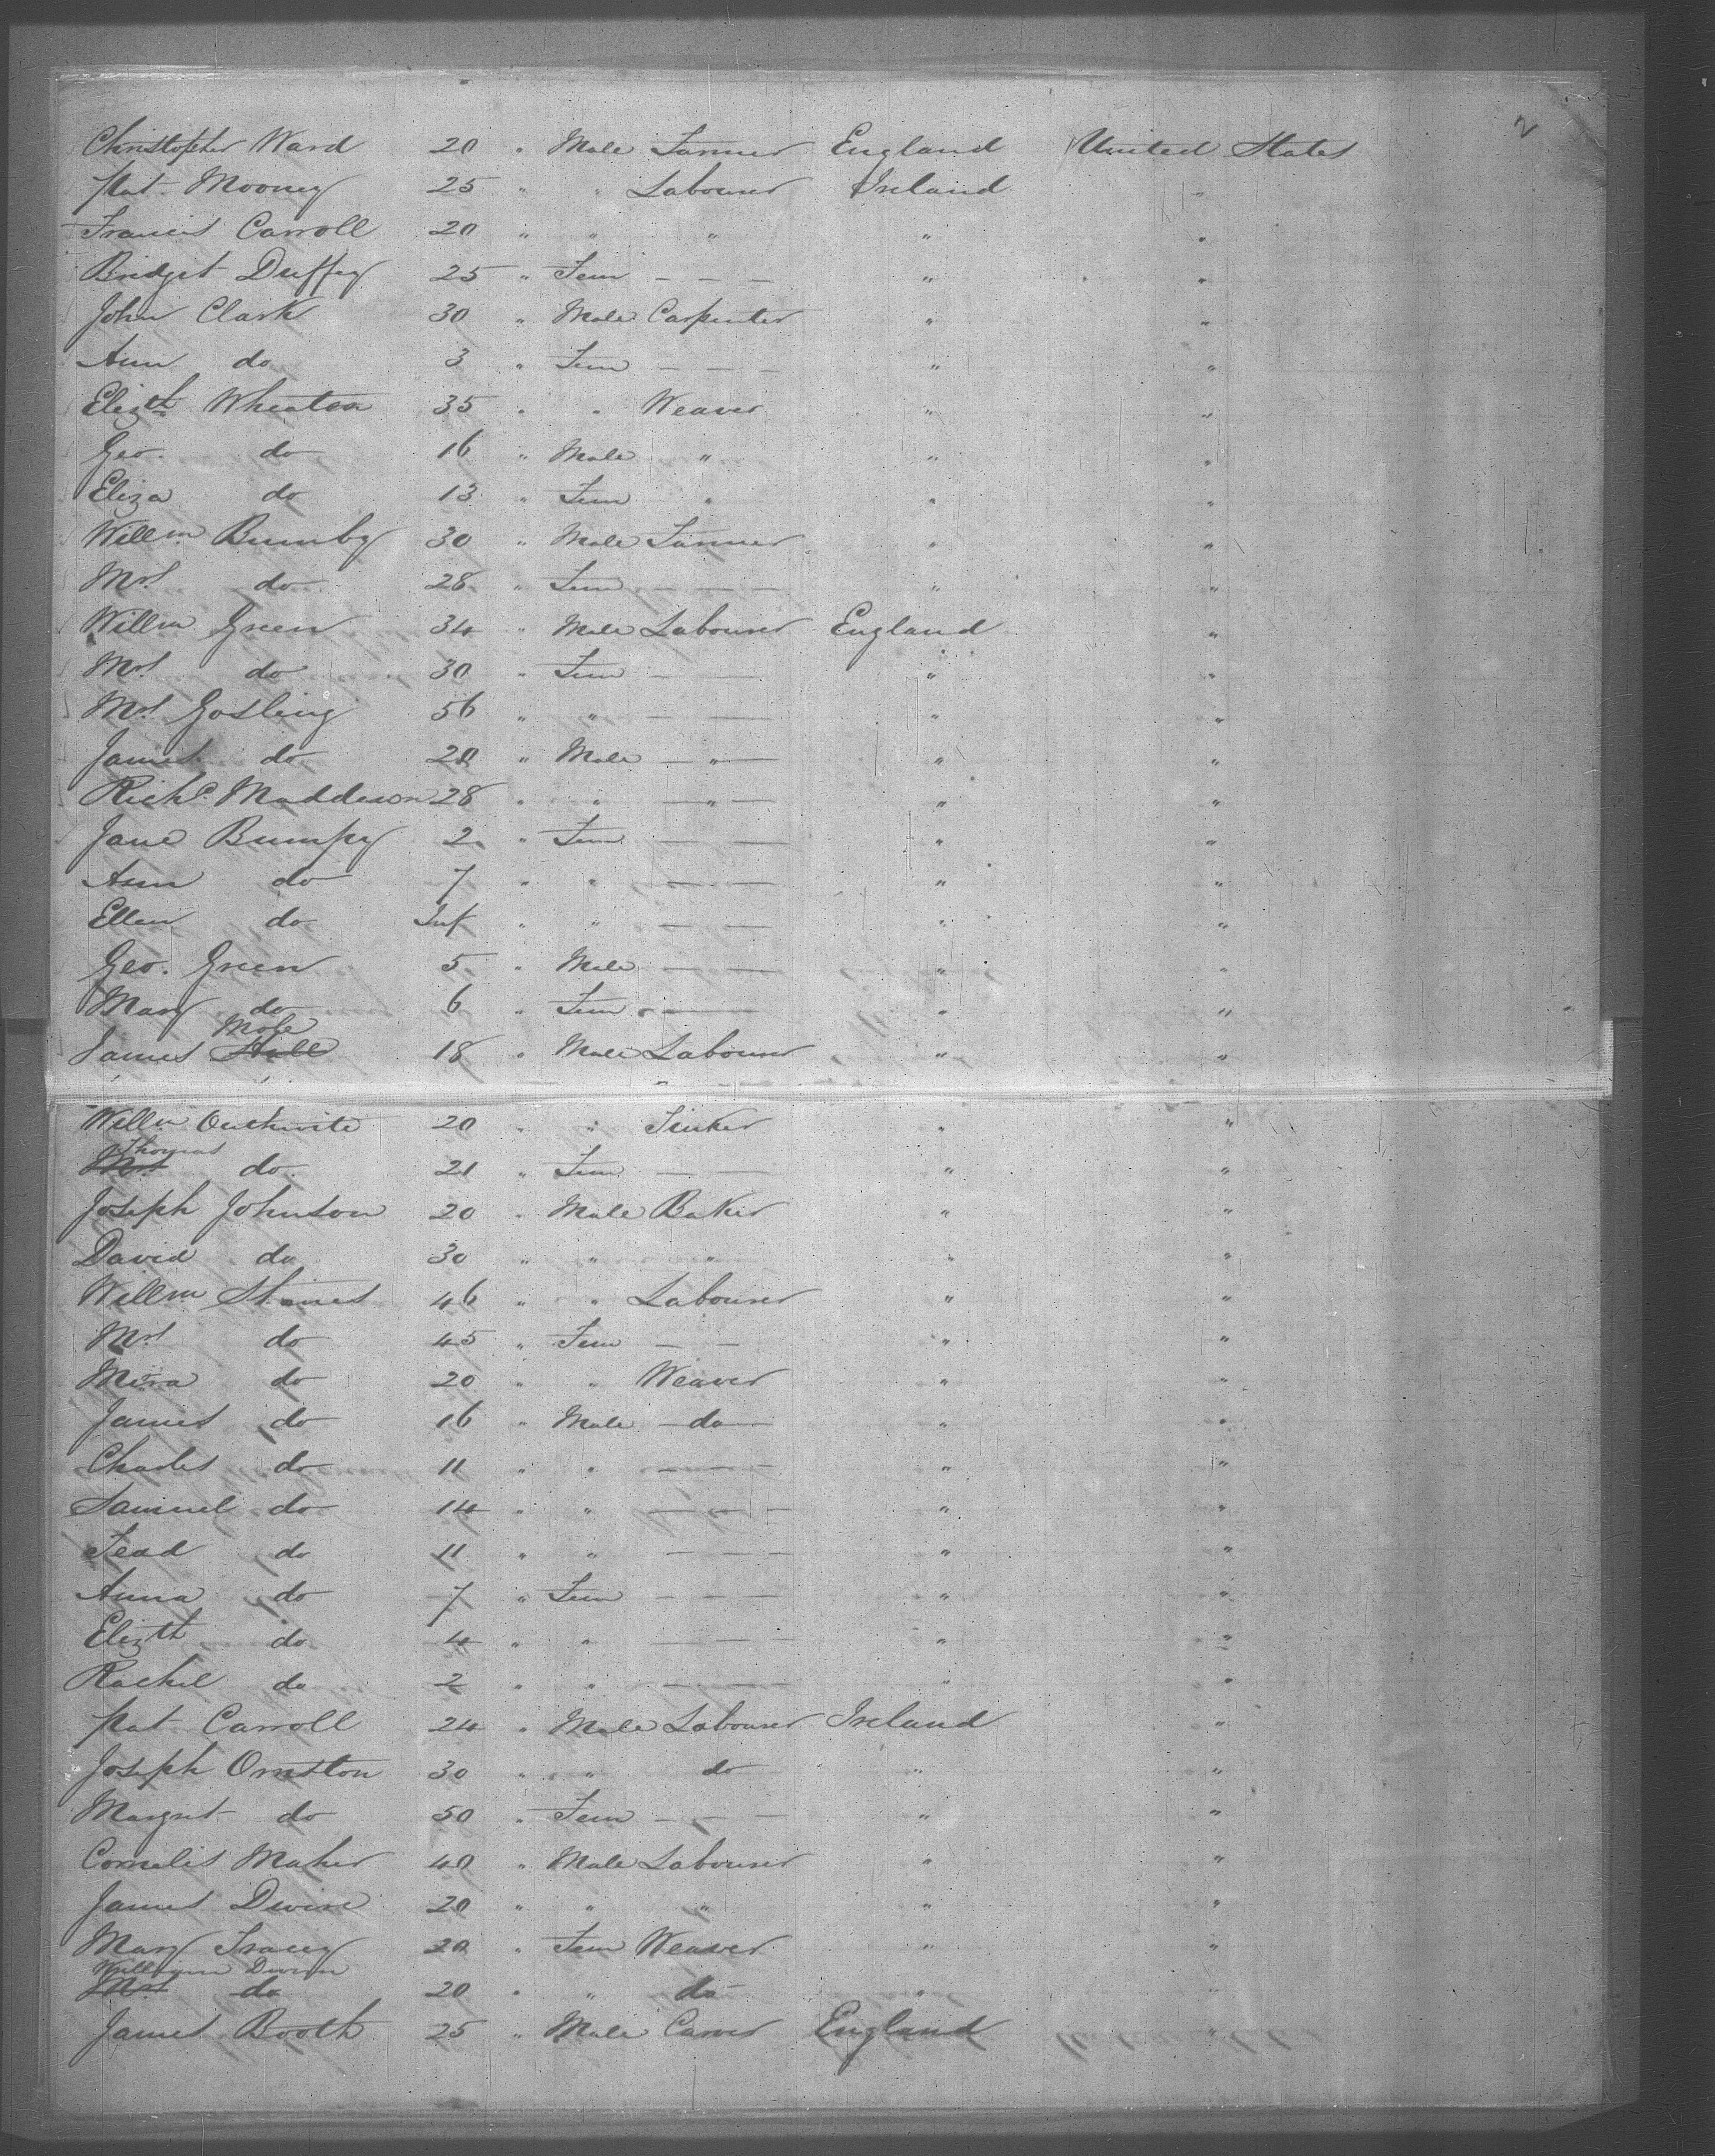 2
Christopher Ward 20 " Male Farmer England United States
Pat Mooney 25 " " Labourer Ireland "
Francis Carroll 20 " " " " "
Bridget Duffy 25 " Fem — — — " "
John Clark 30 " Male Carpenter " "
Ann do 3 " Fem — — — " "
Elizth Wheaton 35 " " Weaver " "
Geo. do 16 " Male " " "
Eliza do 13 " Fem " " "
Willm Bumby 30 " Male Farmer " "
Mrs do 28 " Fem — — — " "
Willm Green 34 " Male Labourer England "
Mrs do 30 " Fem — — " "
Mrs Gosling 56 " " — — " "
James do 20 " Male — " — " "
Richd. Maddison 28 " " — " — " "
Jane Bumpy 2 " Fem — — " "
Ann do 7 " " — — " "
Ellen do Inf " " — — " "
Geo. Green 5 " Male — — " "
Mary do 6 " Fem — " "
Mole
James Hill 18 " Male Labourer " "
Willm Outhwite 20 " " Tinker " "
Thomas
Mrs do 21 " Fem — — " "
Joseph Johnson 20 " Male Baker " "
David do 30 " " " " "
Willm Stanes 46 " " Labourer " "
Mrs do 45 " Fem — — " "
Mira do 20 " " Weaver " "
James do 16 " Male — do — " "
Charles do 11 " " — — — " "
Samuel do 14 " " — — — " "
Fead do 11 " " — — — " "
Anna do 7 " Fem — — — " "
Elizth do 4 " " — — — " "
Rachel do 2 " " — — — " "
Pat Carroll 24 " Male Labourer Ireland "
Joseph Ornston 30 " " do " "
Margret do 50 " Fem — — — " "
Cornelis Maher 40 " Male Labourer " "
James Dwire 20 " " " " "
Mary Tracey 20 " Fem Weaver " "
William Dwire
Mrs do 20 " " do " "
James Booth 25 " Male Carver England "